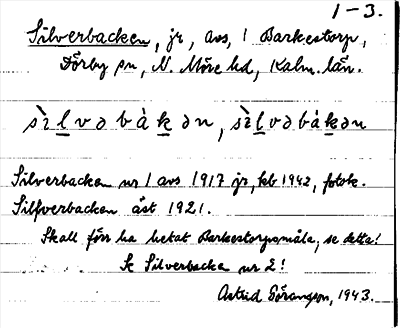 1-3.
Silverbacken, jr, avs, 1 Barkestorp,
Dörby sn, N. Möre hd, Kalm. län.
sìlvəbàkən, sìlvəbákən
Silverbacken nr 1 avs 1917 jr, kb 1942, fotok.
Silfverbacken äst 1921.
Skall förr ha hetat Barkestorpsmåla, se detta!
Se Silverbacka nr 2!
Astrid Göransson, 1943.